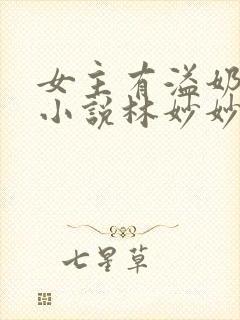 女主有溢奶
小说林妙妙
七星草